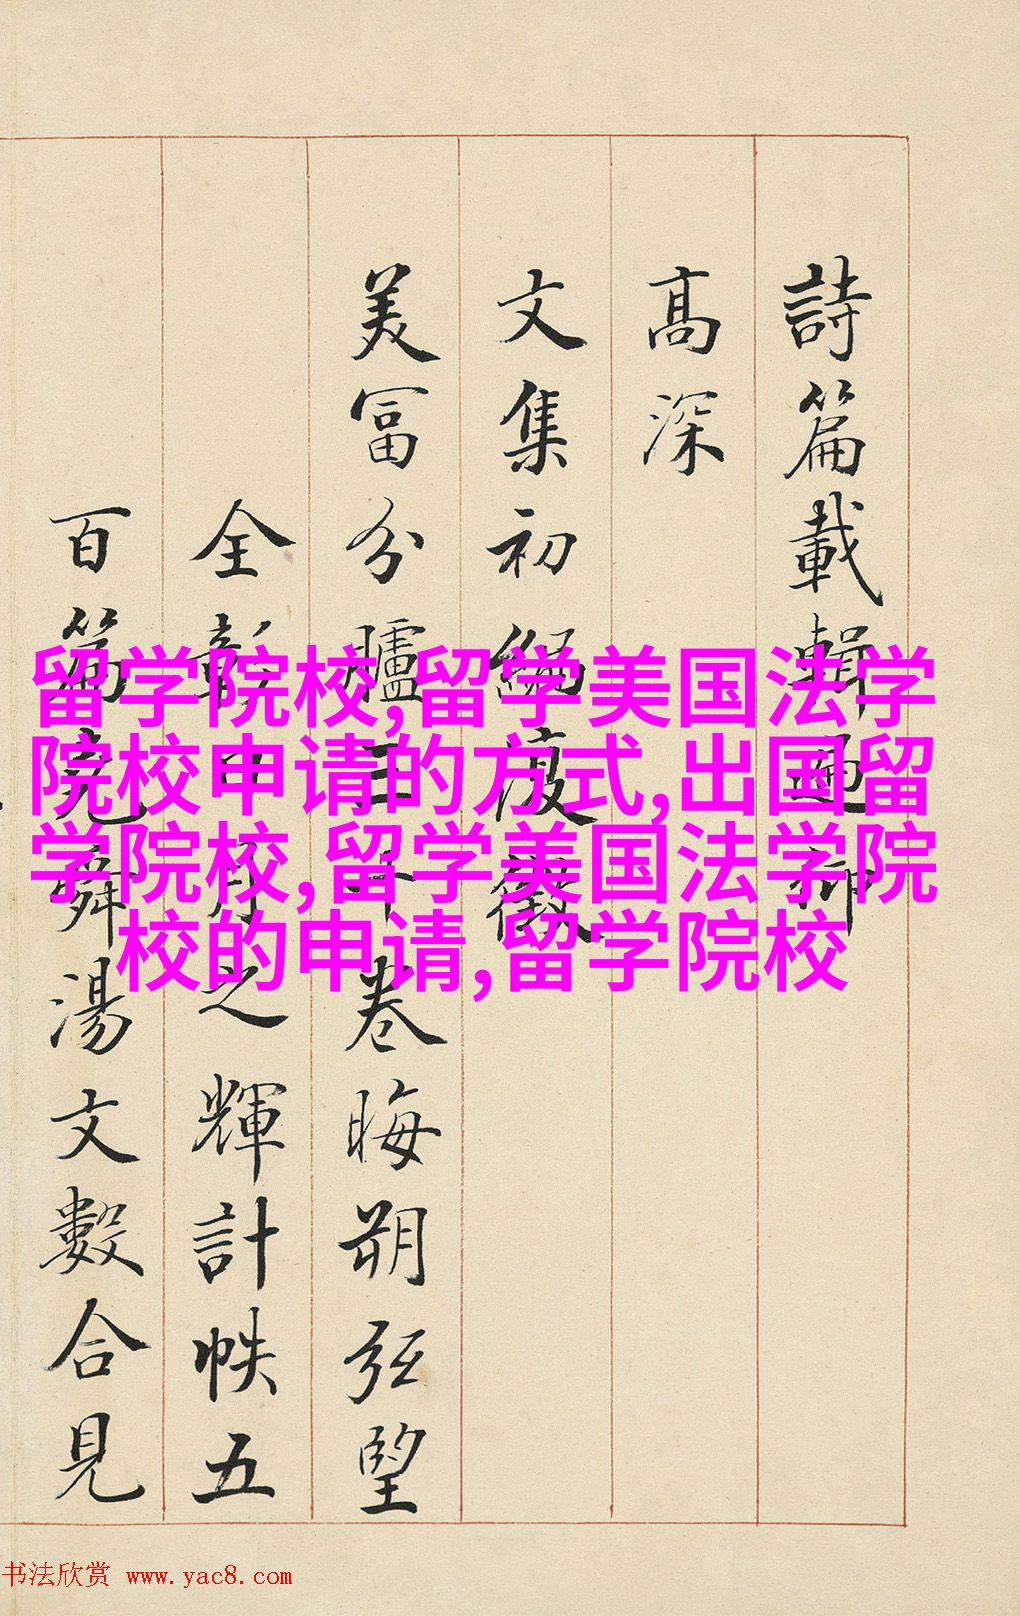 詩篇載輯
高深
文集初編復徵
美富分臚三千卷晦朔弦望
全彰日月之輝計帙五
百篇堯舜湯文數合見
留学院校,留学美国法学
院校申请的方式,出国留
学院校,留学美国法学院
校的申请,留学院校
书法欣赏 www.yac8.com